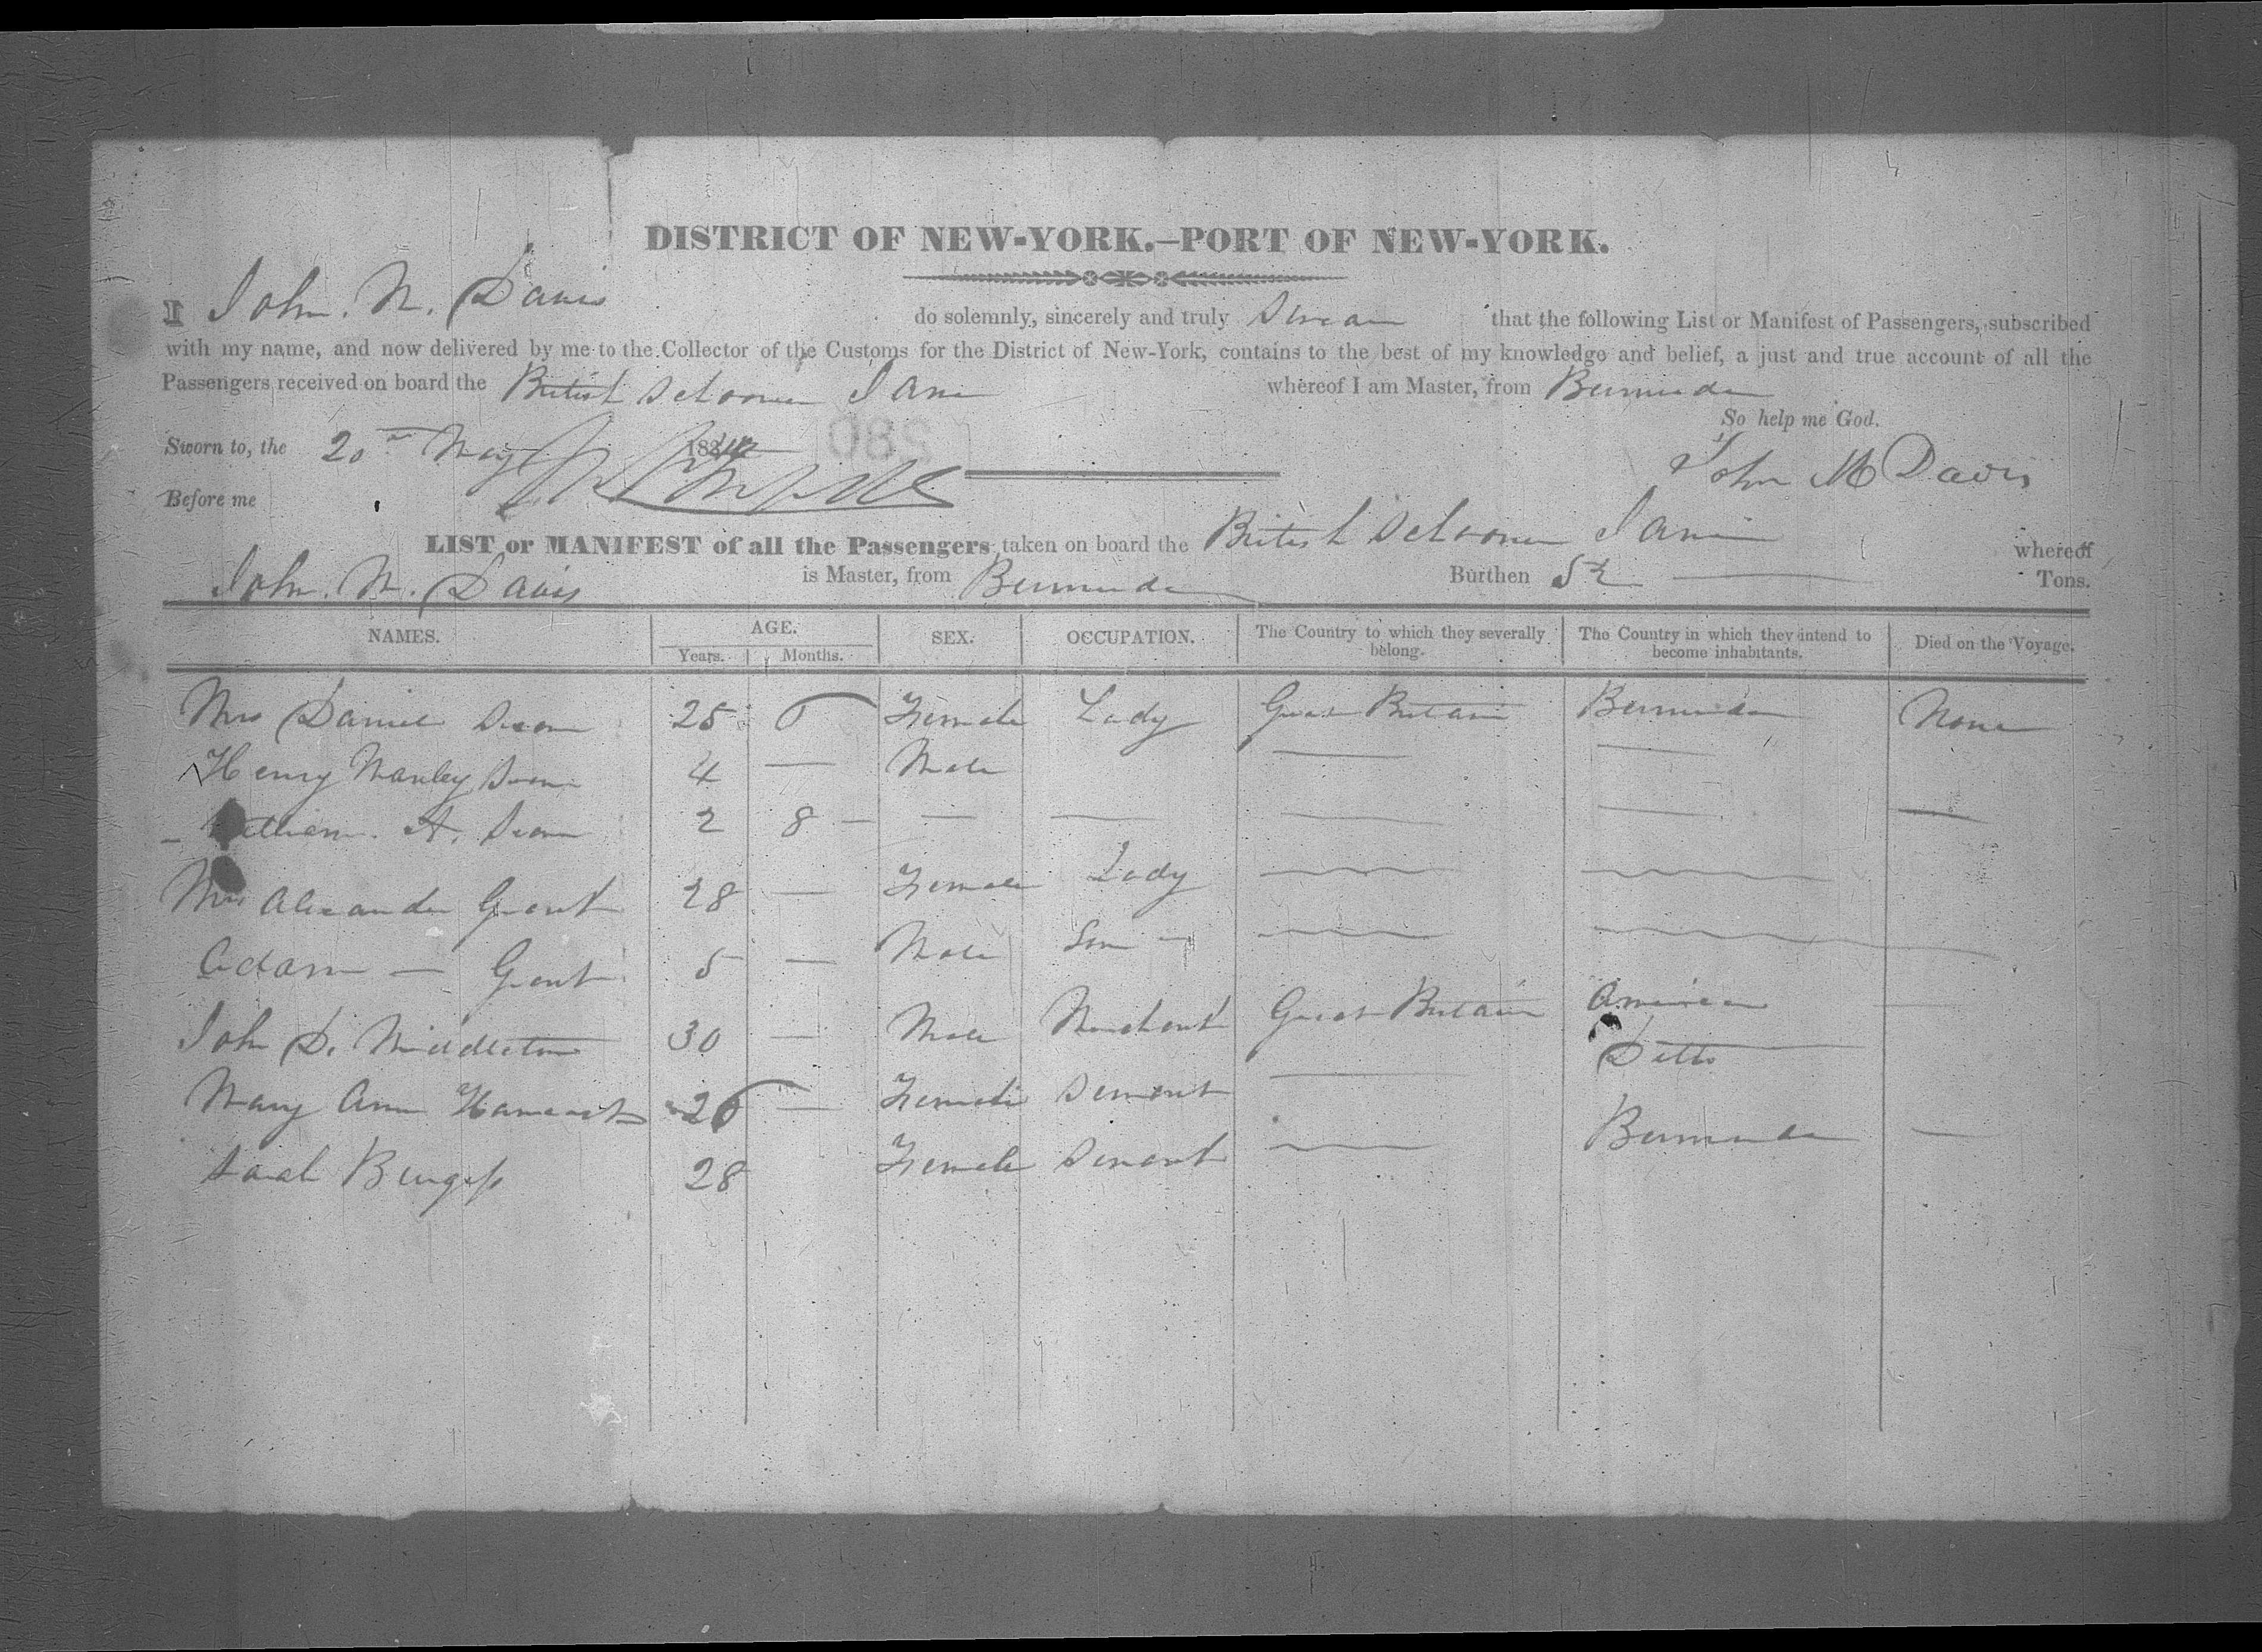 DISTRICT OF NEW-YORK.—PORT OF NEW-YORK.
I John. M. Davis do solemnly, sincerely and truly Swear that the following List or Manifest of Passengers, subscribed
with my name, and now delivered by me to the Collector of the Customs for the District of New-York, contains to the best of my knowledge and belief, a just and true account of all the
Passengers received on board the British Schooner Jane whereof I am Master, from Bermuda
So help me God.
Sworn to, the 20 May 280
John M Davis
Before me
LIST or MANIFEST of all the Passengers taken on board the British Schooner Jane whereof
John. M. Davis is Master, from Bermuda Burthen 52 Tons.
NAMES. AGE. SEX. OCCUPATION. The Country to which they severally belong. The Country in which they intend to become inhabitants. Died on the Voyage.
Years. Months.
Mrs Daniel 25 Female Lady Great Britain Bermuda None
Henry Manley 4 — Male — —
William. A. 2 8 — — — — — —
Mrs Alexander Grant 28 — Female Lady — —
Adam — Grant 5 — Male Son — — —
John S. Middleton 30 — Male Merchant Great Britain America —
Mary Ann 26 — Female Servant — Ditto
Sarah Burgess 28 Female Servant — Bermuda —